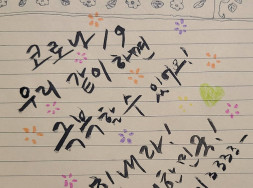 코로나19
우리 같이 하면
극복할 수 있어요!
힘내라!
대한민국!